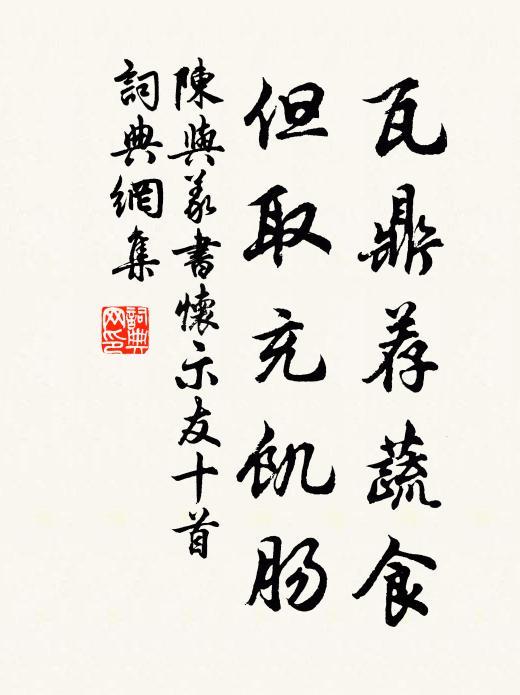 瓦鼎荐蔬食
但取充飢肠
陳與義書懷示友十首
詞典網集
詞典
网印